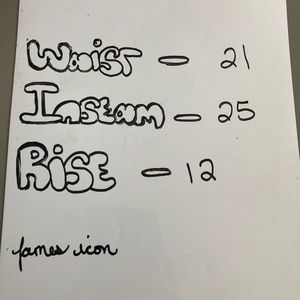 Waist - 21
Inseam - 25
Rise - 12
James icon